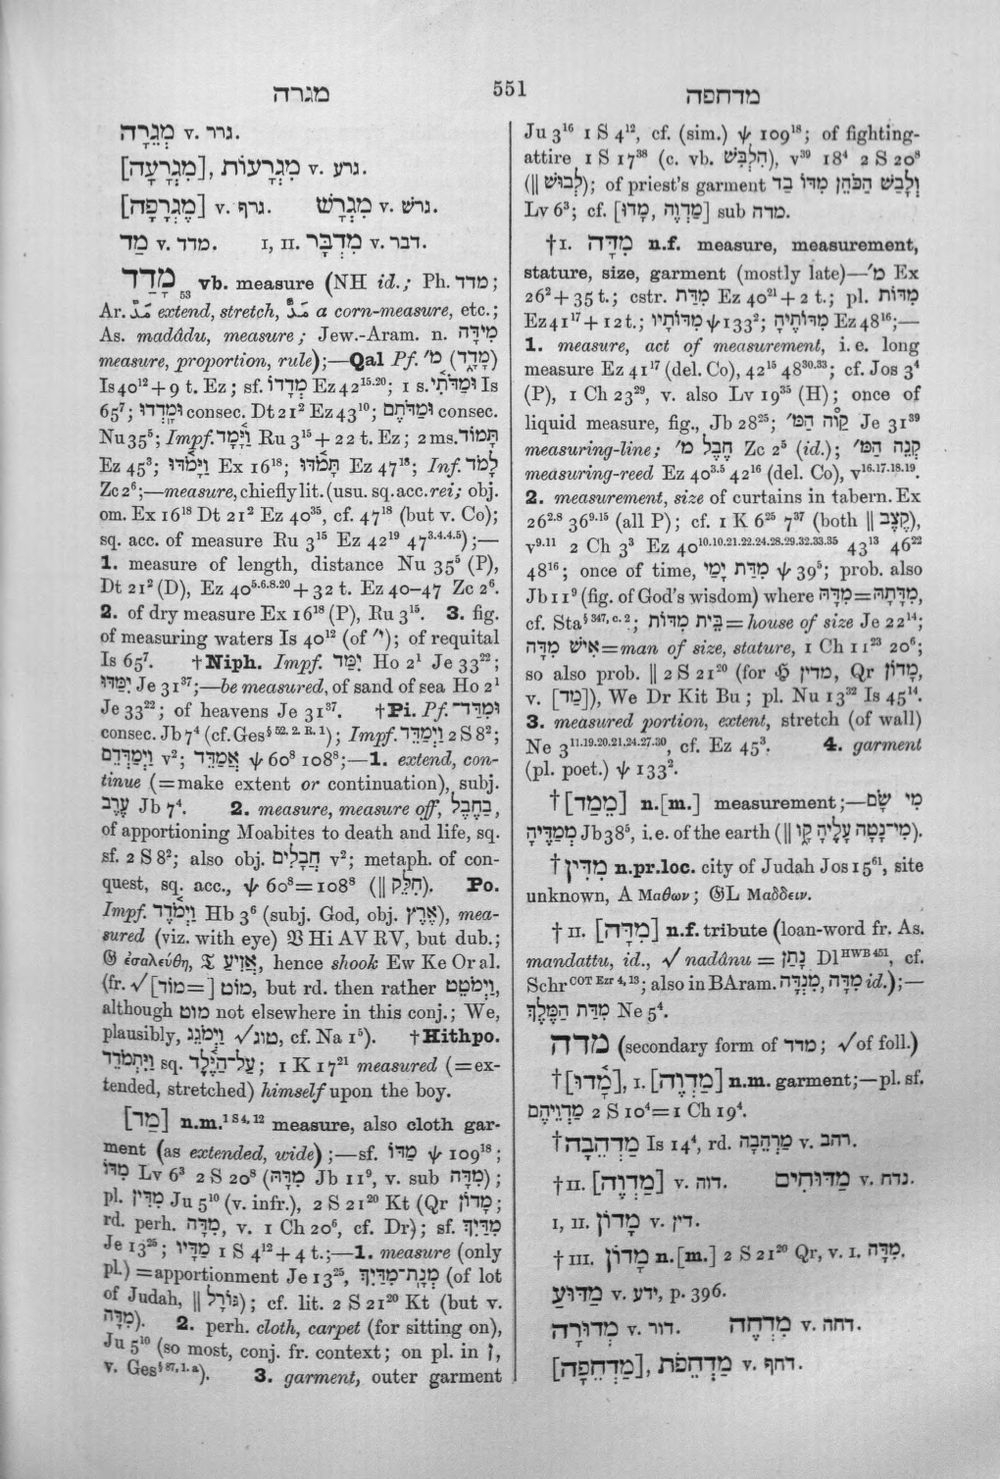 מגרה
551
מדחפה
מְגֵרָה v. גרר.
[מִגְרָעָה], מִגְרָעוֹת v. גרע.
[מֶגְרָפָה] v. גרף. מִגְרָשׁ v. גרשׁ.
מַד v. מדד. I, II. מִדְבָּר v. דבר.
מָדַד 53 vb. measure (NH id.; Ph. מדד;
Ar. مَدَّ extend, stretch, مُدّ a corn-measure, etc.;
As. madâdu, measure; Jew.-Aram. n. מִידָּה
measure, proportion, rule);—Qal Pf. מ׳ (מָדָד)
Is 40¹²+9 t. Ez; sf. מְדָדוֹ Ez 42¹⁵·²⁰; 1 s. וּמַדֹּתִי Is
65⁷; וּמָדְדוּ consec. Dt 21² Ez 43¹⁰; וּמַדֹּתֶם consec.
Nu 35⁵; Impf. וַיָּמָד Ru 3¹⁵+22 t. Ez; 2 ms. תָּמוֹד
Ez 45³; וַיָּמֹדּוּ Ex 16¹⁸; תָּמֹדּוּ Ez 47¹⁸; Inf. לָמֹד
Zc 2⁶;—measure, chiefly lit. (usu. sq. acc. rei; obj.
om. Ex 16¹⁸ Dt 21² Ez 40³⁵, cf. 47¹⁸ (but v. Co);
sq. acc. of measure Ru 3¹⁵ Ez 42¹⁹ 47³·⁴·⁴·⁵);—
1. measure of length, distance Nu 35⁵ (P),
Dt 21² (D), Ez 40⁵·⁶·⁸·²⁰+32 t. Ez 40–47 Zc 2⁶.
2. of dry measure Ex 16¹⁸ (P), Ru 3¹⁵. 3. fig.
of measuring waters Is 40¹² (of י״); of requital
Is 65⁷. †Niph. Impf. יִמַּד Ho 2¹ Je 33²²;
יִמַּדּוּ Je 31³⁷;—be measured, of sand of sea Ho 2¹
Je 33²²; of heavens Je 31³⁷. †Pi. Pf. וּמִדַּד־
consec. Jb 7⁴ (cf. Ges§ 52. 2. R. 1); Impf. וַיְמַדֵּד 2 S 8²;
וַיְמַדְּדֵם v²; אֲמַדֵּד ψ 60⁸ 108⁸;—1. extend, con-
tinue (=make extent or continuation), subj.
עֶרֶב Jb 7⁴. 2. measure, measure off, בַּחֶבֶל,
of apportioning Moabites to death and life, sq.
sf. 2 S 8²; also obj. חֲבָלִים v²; metaph. of con-
quest, sq. acc., ψ 60⁸=108⁸ (‖ חִלֵּק). Po.
Impf. וַיְמֹדֶד Hb 3⁶ (subj. God, obj. אֶרֶץ), mea-
sured (viz. with eye) 𝔙 Hi AV RV, but dub.;
𝔊 ἐσαλεύθη, 𝔗 אֲזִיעַ, hence shook Ew Ke Or al.
(fr. √ [מוד=] מוט, but rd. then rather וַיְמֹטֵט,
although מוט not elsewhere in this conj.; We,
plausibly, וַיְמֹגֵג √מוג, cf. Na 1⁵). †Hithpo.
וַיִּתְמֹדֵד sq. עַל־הַיֶּלֶד; 1 K 17²¹ measured (=ex-
tended, stretched) himself upon the boy.
[מַד] n.m.¹ ˢ ⁴, ¹² measure, also cloth gar-
ment (as extended, wide);—sf. מַדּוֹ ψ 109¹⁸;
מִדּוֹ Lv 6³ 2 S 20⁸ (מִדָּהּ Jb 11⁹, v. sub מִדָּה);
pl. מִדִּין Ju 5¹⁰ (v. infr.), 2 S 21²⁰ Kt (Qr מָדוֹן;
rd. perh. מִדָּה, v. 1 Ch 20⁶, cf. Dr); sf. מִדַּיִךְ
Je 13²⁵; מַדָּיו 1 S 4¹²+4 t.;—1. measure (only
pl.)=apportionment Je 13²⁵, מְנָת־מִדַּיִךְ (of lot
of Judah, ‖ גּוֹרָל); cf. lit. 2 S 21²⁰ Kt (but v.
מִדָּה). 2. perh. cloth, carpet (for sitting on),
Ju 5¹⁰ (so most, conj. fr. context; on pl. in ן,
v. Ges§ 87, 1. a). 3. garment, outer garment
Ju 3¹⁶ 1 S 4¹², cf. (sim.) ψ 109¹⁸; of fighting-
attire 1 S 17³⁸ (c. vb. הִלְבִּישׁ), v³⁹ 18⁴ 2 S 20⁸
(‖ לְבוּשׁ); of priest's garment וְלָבַשׁ הַכֹּהֵן מִדּוֹ בַד
Lv 6³; cf. [מָדוּ, מַדְוֶה] sub מדה.
†I. מִדָּה n.f. measure, measurement,
stature, size, garment (mostly late)—מ׳ Ex
26²+35 t.; cstr. מִדַּת Ez 40²¹+2 t.; pl. מִדּוֹת
Ez 41¹⁷+12 t.; מִדּוֹתָיו ψ 133²; מִדּוֹתֶיהָ Ez 48¹⁶;—
1. measure, act of measurement, i.e. long
measure Ez 41¹⁷ (del. Co), 42¹⁵ 48³⁰·³³; cf. Jos 3⁴
(P), 1 Ch 23²⁹, v. also Lv 19³⁵ (H); once of
liquid measure, fig., Jb 28²⁵; קַו הַמּ׳ Je 31³⁹
measuring-line; חֶבֶל מ׳ Zc 2⁵ (id.); קְנֵה הַמּ׳
measuring-reed Ez 40³·⁵ 42¹⁶ (del. Co), v¹⁶·¹⁷·¹⁸·¹⁹.
2. measurement, size of curtains in tabern. Ex
26²·⁸ 36⁹·¹⁵ (all P); cf. 1 K 6²⁵ 7³⁷ (both ‖ קֶצֶב),
v⁹·¹¹ 2 Ch 3³ Ez 40¹⁰·¹⁰·²¹·²²·²⁴·²⁸·²⁹·³²·³³·³⁵ 43¹³ 46²²
48¹⁶; once of time, מִדַּת יָמַי ψ 39⁵; prob. also
Jb 11⁹ (fig. of God's wisdom) where מִדָּהּ=מִדָּתָהּ,
cf. Sta§ 347, c. 2; בֵּית מִדּוֹת=house of size Je 22¹⁴;
אִישׁ מִדָּה=man of size, stature, 1 Ch 11²³ 20⁶;
so also prob. ‖ 2 S 21²⁰ (for 𝔥 מדין, Qr מָדוֹן,
v. [מַד]), We Dr Kit Bu; pl. Nu 13³² Is 45¹⁴.
3. measured portion, extent, stretch (of wall)
Ne 3¹¹·¹⁹·²⁰·²¹·²⁴·²⁷·³⁰, cf. Ez 45³. 4. garment
(pl. poet.) ψ 133².
†[מֵמַד] n.[m.] measurement;—מִי שָׂם
מְמַדֶּיהָ Jb 38⁵, i.e. of the earth (‖ מִי־נָטָה עָלֶיהָ קָּו).
†מִדִּין n.pr.loc. city of Judah Jos 15⁶¹, site
unknown, A Μαδων; 𝔊L Μαδδειν.
†II. [מִדָּה] n.f. tribute (loan-word fr. As.
mandattu, id., √ nadânu = נָתַן Dlᴴᵂᴮ ⁴⁵¹, cf.
Schrᶜᴼᵀ ᴱᶻʳ ⁴, ¹³; also in BAram. מִדָּה, מִנְדָּה id.);—
מִדַּת הַמֶּלֶךְ Ne 5⁴.
מדה (secondary form of מדד; √of foll.)
†[מָדוּ], I. [מַדְוֶה] n.m. garment;—pl. sf.
מַדְוֵיהֶם 2 S 10⁴=1 Ch 19⁴.
†מַדְהֵבָה Is 14⁴, rd. מַרְהֵבָה v. רהב.
†II. [מַדְוֶה] v. דוה. מַדּוּחִים v. נדח.
I, II. מָדוֹן v. דין.
†III. מָדוֹן n.[m.] 2 S 21²⁰ Qr, v. I. מִדָּה.
מַדּוּעַ v. ידע, p. 396.
מְדוּרָה v. דור. מִדְחֶה v. דחה.
[מַדְחֵפָה], מַדְחֵפֹת v. דחף.